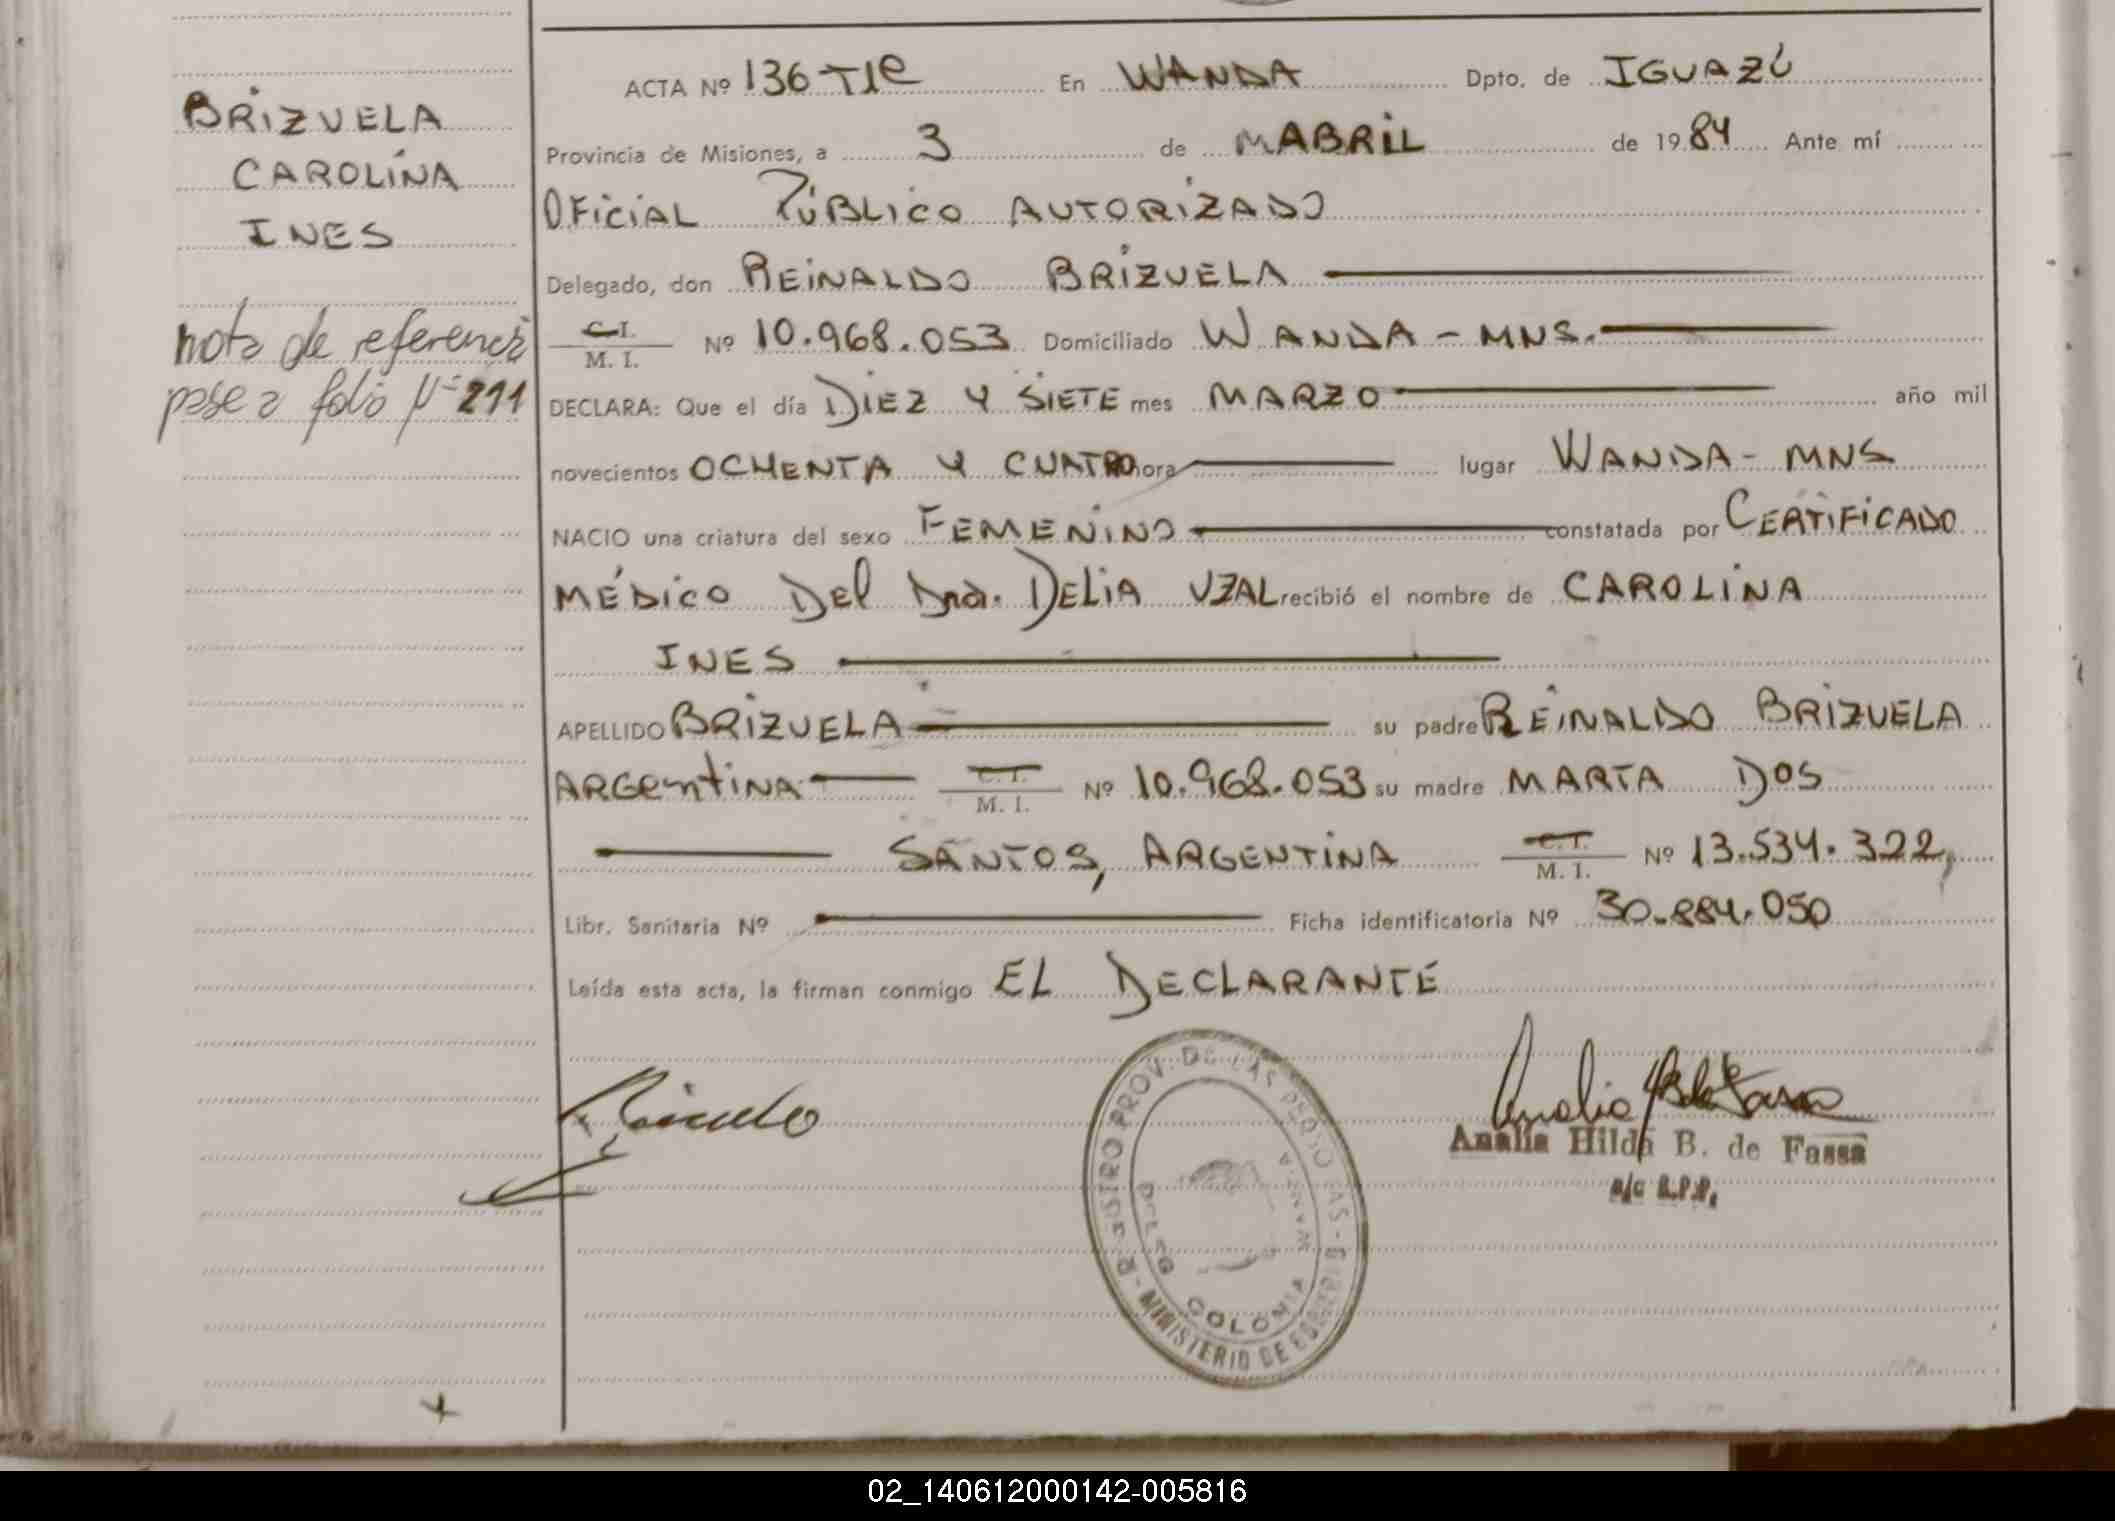 BRIZUELA
CAROLINA
INES
nota de referencia
pase a folio Nº 211
ACTA Nº 136 TIe En WANDA Dpto. de IGUAZÚ
Provincia de Misiones, a 3 de MABRIL de 1984 Ante mí
OFICIAL PÚBLICO AUTORIZADO
Delegado, don REINALDO BRIZUELA
C.I.
M. I. Nº 10.968.053 Domiciliado WANDA - MNS.
DECLARA: Que el día DIEZ Y SIETE mes MARZO año mil
novecientos OCHENTA Y CUATRO hora lugar WANDA - MNS
NACIO una criatura del sexo FEMENINO constatada por CERTIFICADO
MÉDICO Del Dra. DELIA UZAL recibió el nombre de CAROLINA
INES
APELLIDO BRIZUELA su padre REINALDO BRIZUELA
ARGENTINA C.I. M. I. Nº 10.968.053 su madre MARTA DOS
SANTOS, ARGENTINA C.I. M. I. Nº 13.534.322,
Libr. Sanitaria Nº Ficha identificatoria Nº 30.884.050
Leída esta acta, la firman conmigo EL DECLARANTE
REGISTRO PROV. DE LAS PERSONAS - MINISTERIO DE GOBIERNO
DELEG COLONIA WANDA
Analia Hilda B. de Fassa
a/c R.P.P.
02_140612000142-005816